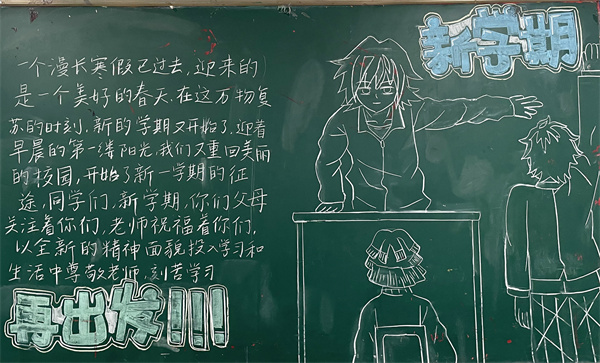 新学期
一个漫长寒假已过去,迎来的
是一个美好的春天,在这万物复
苏的时刻,新的学期又开始了,迎着
早晨的第一缕阳光,我们又重回美丽
的校园,开始了新一学期的征
途,同学们,新学期,你们父母
关注着你们,老师祝福着你们,
以全新的精神面貌投入学习和
生活中尊敬老师,刻苦学习
再出发!!!